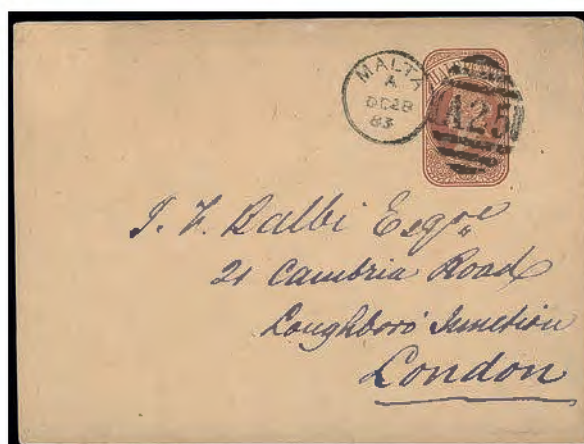 MALTA
A
DE 28
83
A25
J. F. Balbi Esqre
21 Cambria Road
Loughboro' Junction
London